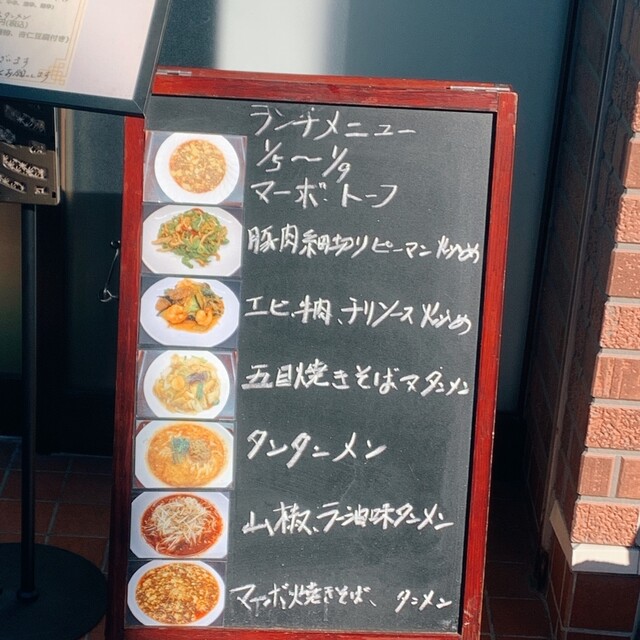 円(税込)
杏仁豆腐付き)
ランチメニュー
1/5〜1/9
マーボ・トーフ
豚肉細切りピーマン炒め
エビ、牛肉、チリソース炒め
五目焼きそばヌタンメン
タンタンメン
山椒、ラー油味タンメン
マーボ焼きそば、タンメン